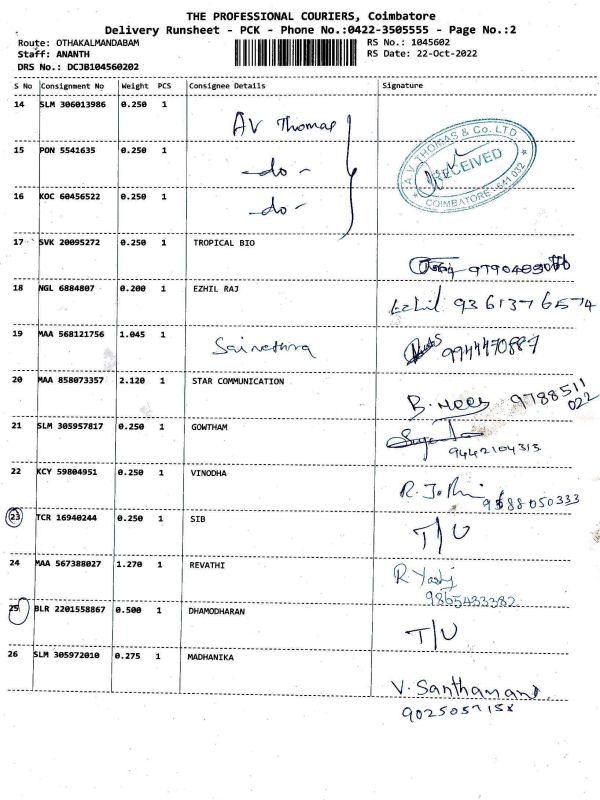 THE PROFESSIONAL COURIERS, Coimbatore
Delivery Runsheet - PCK - Phone No.:0422-3505555 - Page No.:2
Route: OTHAKALMANDABAM
RS No.: 1045602
Staff: ANANTH
RS Date: 22-Oct-2022
DRS No.: DCJB104560202
S No Consignment No Weight PCS Consignee Details Signature
14 SLM 306013986 0.250 1 AV Thomas
15 PON 5541635 0.250 1 -do-
A.V. THOMAS & Co. LTD
RECEIVED
COIMBATORE - 641 032
16 KOC 60456522 0.250 1 -do-
17 SVK 20095272 0.250 1 TROPICAL BIO
18 NGL 6884807 0.200 1 EZHIL RAJ
Ezhil 9361376574
19 MAA 568121756 1.045 1 Sainethra
9944470887
20 MAA 858073357 2.120 1 STAR COMMUNICATION
9788511
022
21 SLM 305957817 0.250 1 GOWTHAM
9442104313
22 KCY 59804951 0.250 1 VINODHA
23 TCR 16940244 0.250 1 SIB
T/U
24 MAA 567388027 1.270 1 REVATHI
9865433382
25 BLR 2201558867 0.500 1 DHAMODHARAN
T/U
26 SLM 305972010 0.275 1 MADHANIKA